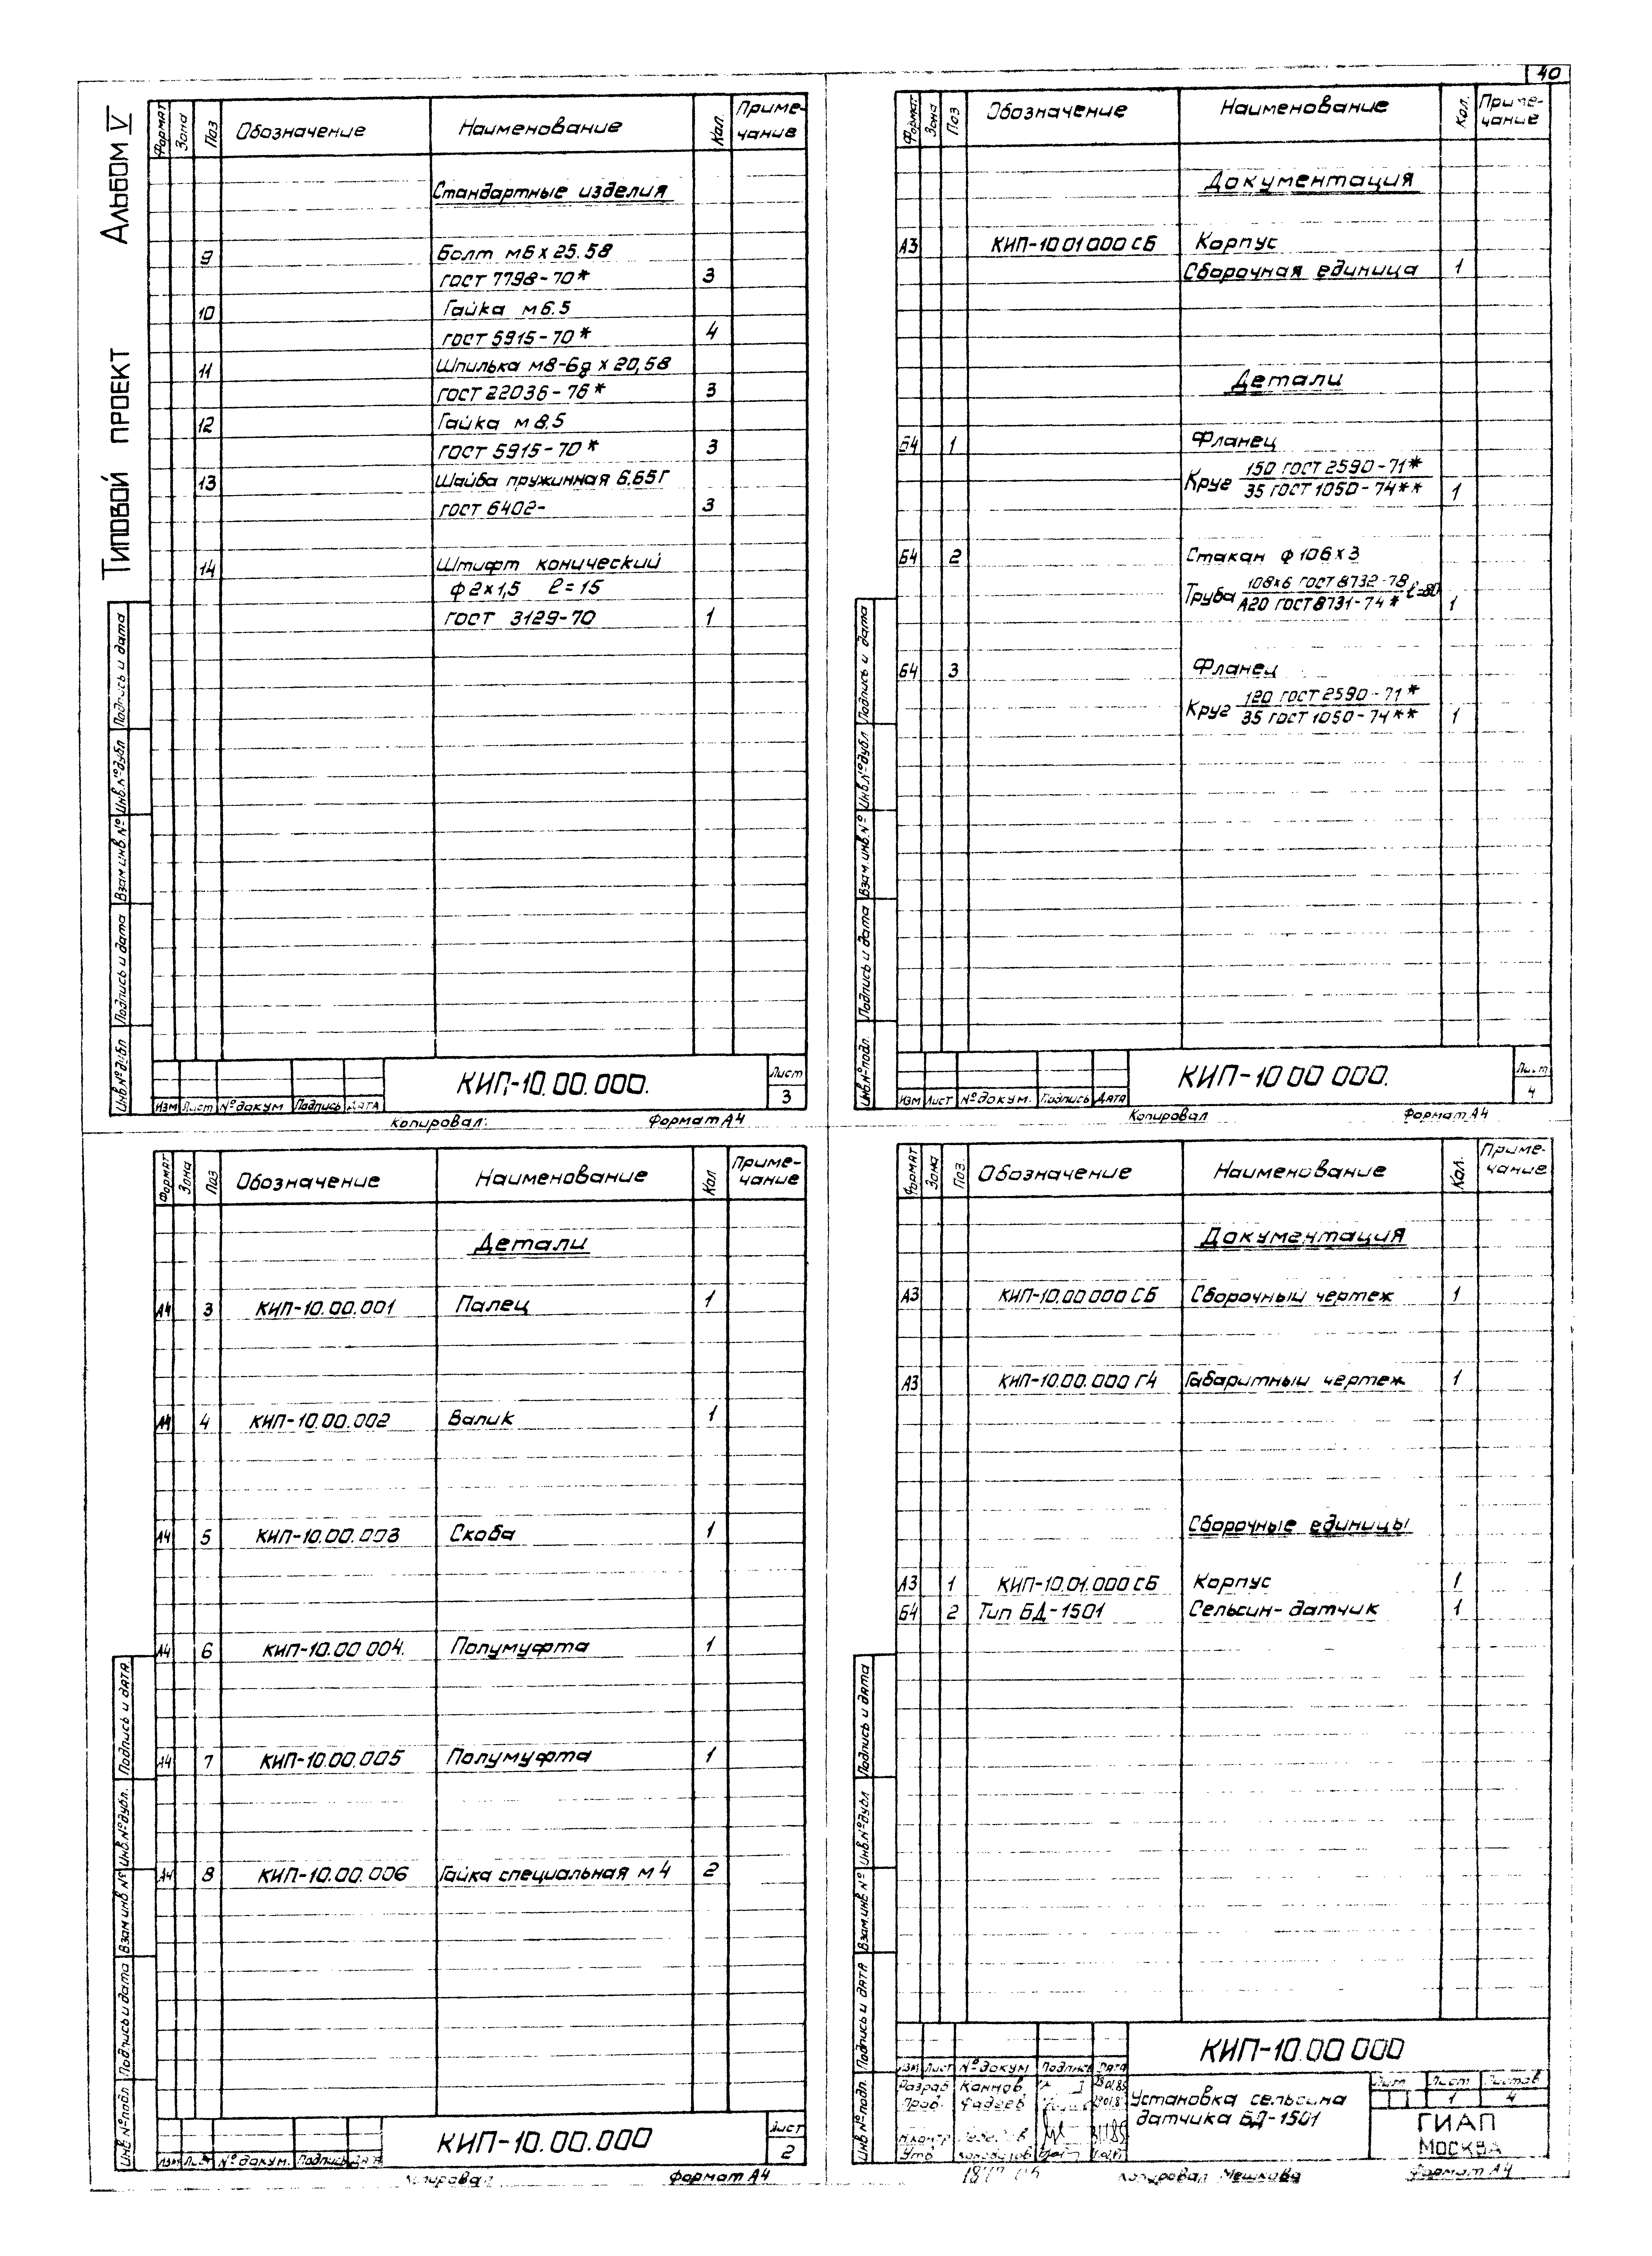 40
Типовой проект Альбом V
Формат Зона Поз Обозначение Наименование Кол. Приме-
чание
Стандартные изделия
9 Болт м6х25.58
гост 7798-70* 3
10 Гайка м6.5
гост 5915-70* 4
11 Шпилька м8-6g х 20,58
гост 22036-76* 3
12 Гайка м8,5
гост 5915-70* 3
13 Шайба пружинная 6.65Г
гост 6402- 3
14 Штифт конический
ф2х1,5 ℓ=15
гост 3129-70 1
Инв.№дубл Подпись и дата Взам.инв.№ Инв.№дубл Подпись и дата
КИП-10.00.000.
Лист
3
Изм Лист №докум Подпись Дата
Копировал: Формат А4
Формат Зона Поз Обозначение Наименование Кол. Приме-
чание
Документация
А3 КИП-10.01 000 СБ Корпус
Сборочная единица 1
Детали
Б4 1 Фланец
Круг 150 гост 2590-71*
35 гост 1050-74** 1
Б4 2 Стакан ф106х3
Труба 108х6 гост 8732-78 ℓ=80
А20 гост 8731-74* 1
Б4 3 Фланец
Круг 120 гост 2590-71*
35 гост 1050-74** 1
Инв.№подл. Подпись и дата Взам.инв.№ Инв.№дубл Подпись и дата
КИП-10 00 000.
Лист
4
Изм Лист №докум. Подпись Дата
Копировал Формат А4
Формат Зона Поз Обозначение Наименование Кол Приме-
чание
Детали
А4 3 КИП-10.00.001 Палец 1
А4 4 КИП-10.00.002 Валик 1
А4 5 КИП-10.00.003 Скоба 1
А4 6 КИП-10.00 004. Полумуфта 1
А4 7 КИП-10.00.005 Полумуфта 1
А4 8 КИП-10.00.006 Гайка специальная м4 2
Инв №подл Подпись и дата Взам инв № Инв.№дубл. Подпись и дата
КИП-10.00.000
Лист
2
Изм Лист №докум. Подпись Дата
Копировал Формат А4
Формат Зона Поз. Обозначение Наименование Кол. Приме-
чание
Документация
А3 КИП-10.00 000 СБ Сборочный чертеж 1
А3 КИП-10.00.000 ГЧ Габаритный чертеж 1
Сборочные единицы
А3 1 КИП-10.01.000 СБ Корпус 1
Б4 2 Тип БД-1501 Сельсин-датчик 1
Инв №подл. Подпись и дата Взам.инв № Инв.№дубл Подпись и дата
КИП-10.00 000
Изм Лист №докум Подпись Дата
Разраб
Пров. Фадеев
Н.контр
Утв
Установка сельсина
датчика БД-1501
Лит Лист Листов
1 4
ГИАП
Москва
Копировал Мешкова Формат А4